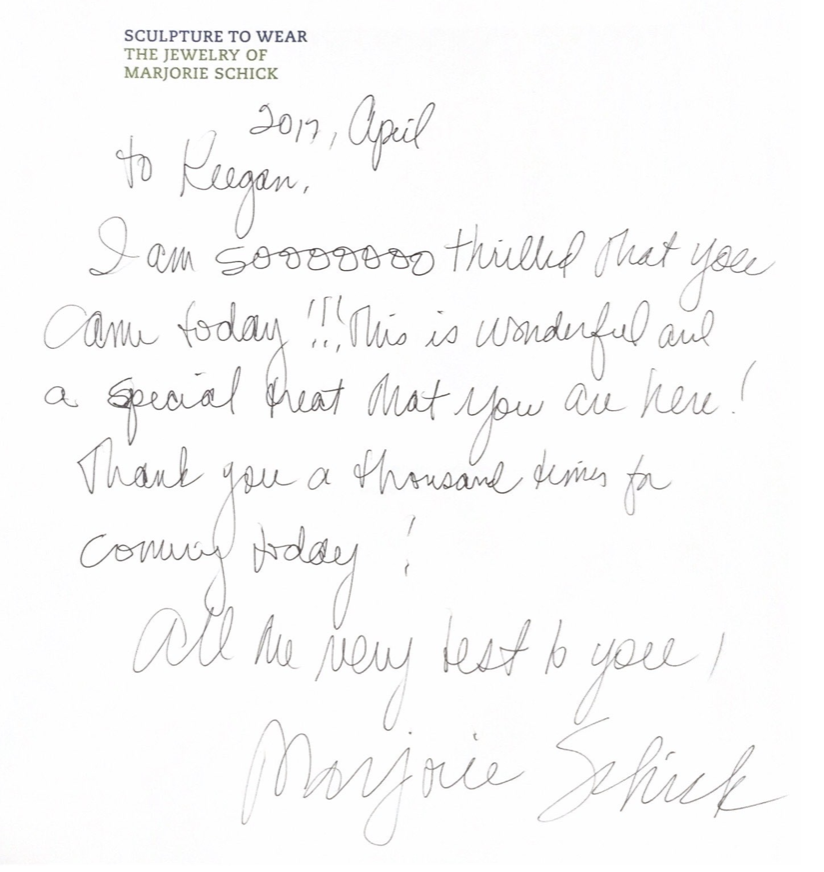 SCULPTURE TO WEAR
THE JEWELRY OF
MARJORIE SCHICK
2017, April
to Keegan,
I am soooooooo thrilled that you
came today !!! This is wonderful and
a special treat that you are here!
Thank you a thousand times for
coming today !
All the very best to you!
Marjorie Schick